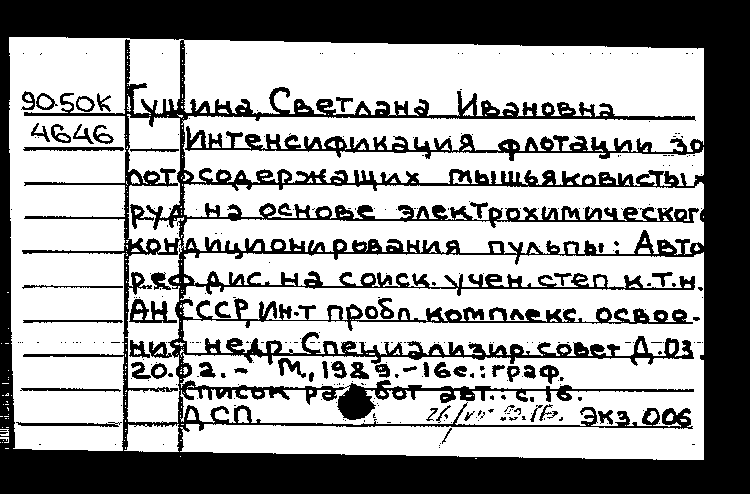 90-50К Гущина, Светлана Ивановна
4646 Интенсификация флотации зо
лотосодержащих мышьяковистых
руд на основе электрохимического
кондиционирования пульпы: Авто
реф.дис. на соиск. учен. степ к.т.н.
АН СССР, Ин-т пробл. комплекс. освое-
ния недр. Специализир. совет Д.03.
20.02. - М., 1989. - 16 с.: граф.
Список работ авт.: с. 16.
ДСП. Экз. 006